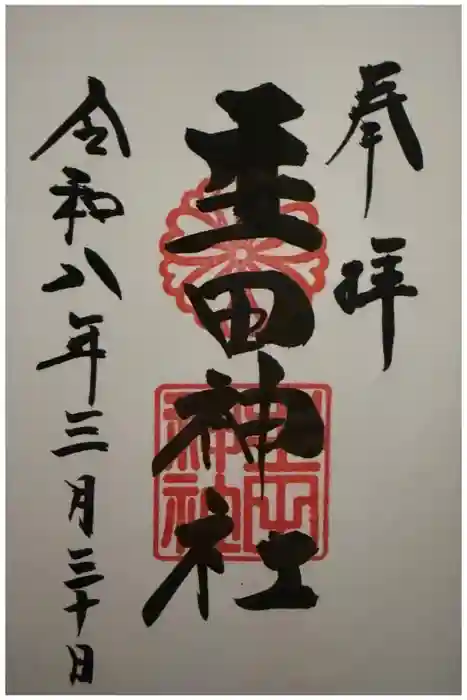 奉拝
生田神社
令和八年三月三十日
生田
神社